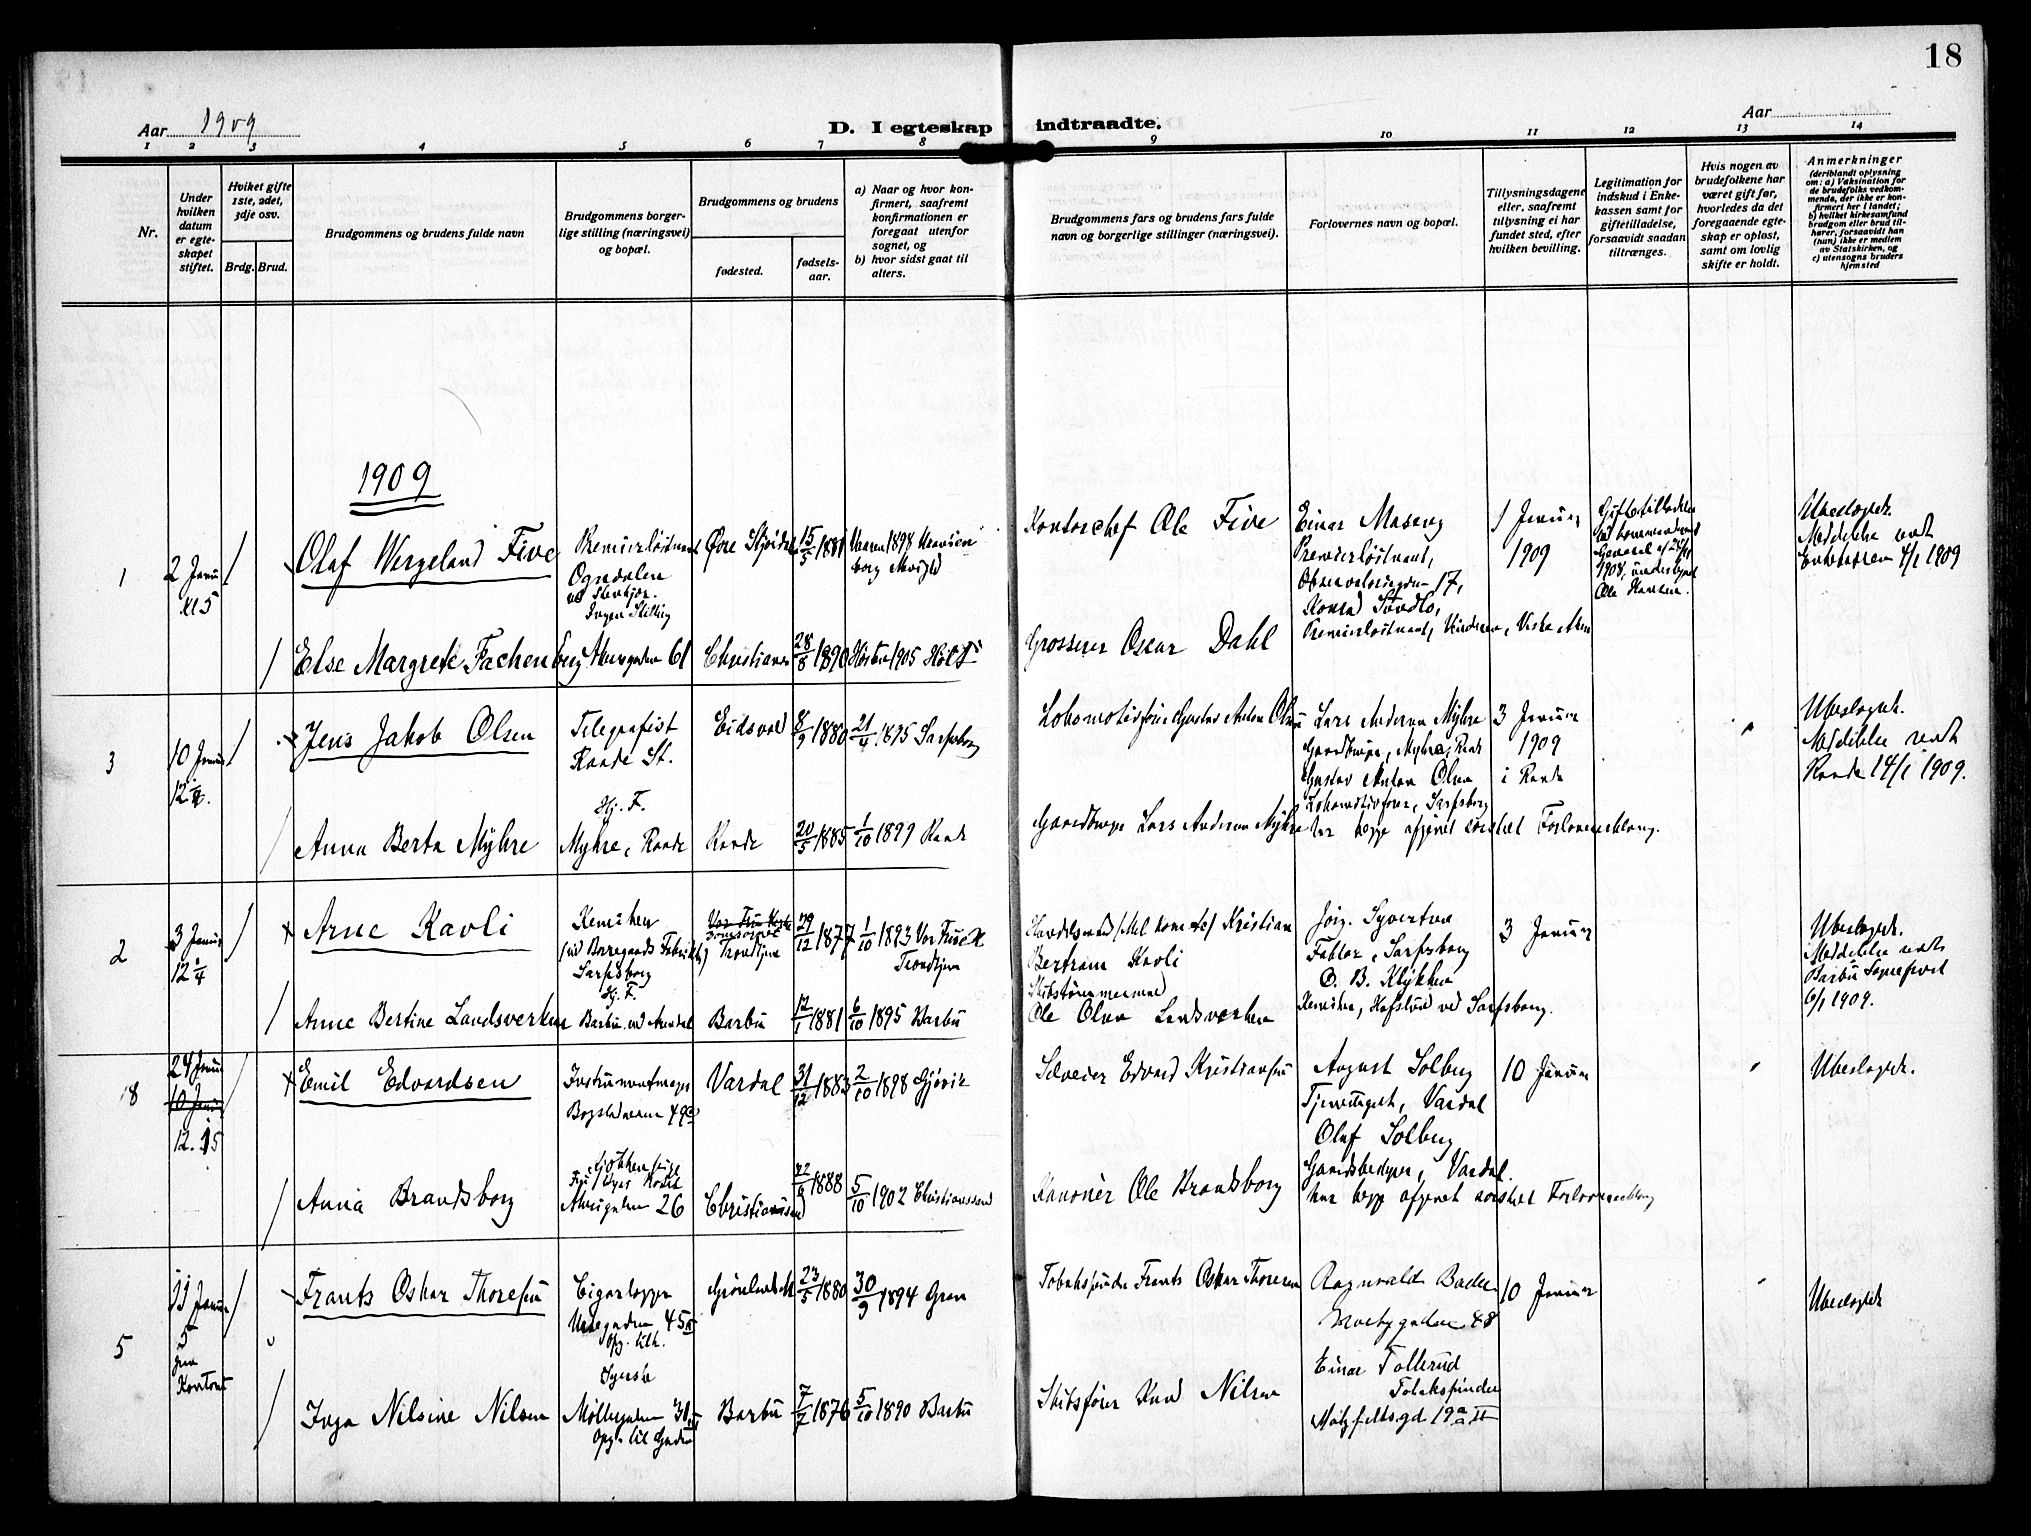 18
Aar 1909
D. I egteskap indtraadte.
Aar
1 2 3 4 5 6 7 8 9 10 11 12 13 14
Nr.
Under hvilken datum er egteskapet stiftet.
Hviket gifte 1ste, 2det, 3dje osv.
Brdg. Brud.
Brudgommens og brudens fulde navn
Brudgommens borgerlige stilling (næringsvei) og bopæl.
Brudgommens og brudens
fødested.
fødselsaar.
a) Naar og hvor konfirmert, saafremt konfirmationen er foregaat utenfor sognet, og
b) hvor sidst gaat til alters.
Brudgommens fars og brudens fars fulde navn og borgerlige stillinger (næringsvei).
Forlovernes navn og bopæl.
Tillysningsdagene eller, saafremt tillysning ei har fundet sted, efter hvilken bevilling.
Legitimation for indskud i Enkekassen samt for giftetilladelse, forsaavidt saadan tiltrænges.
Hvis nogen av brudefolkene har været gift før, hvorledes da det foregaaende egteskap er opløst, samt om lovlig skifte er holdt.
Anmerkninger
(deriblandt oplysning om: a) Vaksination for de brudefolks vedkommende, der ikke er konfirmert her i landet; b) hvilket kirkesamfund brudgom eller brud tilhører, forsaavidt han (hun) ikke er medlem av Statskirken, og c) utensogns bruders hjemsted
1909
1
2 Janu
Kl 5
Olaf Wergeland Five
Premierløitnant
Ogndalen
ved Stenkjær.
Ingen Stilling
15/5 1881
Kontorchef Ole Five
Einar Maseng
Premierløitnant,
Observatoriegaden 17,
1 Januar
1909
Ubeslegtet.
Meddelelse sendt
Enkekassen 4/1 1909
Else Margrete Fachenberg
61
Christiania
28/8 1890
Høsten 1905
Grosserer Oscar Dahl
3
10 Januar
Jens Jakob Olsen
Telegrafist
Raade St.
Eidsvold
8/9 1880
21/4 1895 Sarpsborg
Lokomotivfører Gustav Anton Olsen
Lars Anderson Myhre
Gaardbruger, Myhre, Raade
Gustav Anton Olsen
Lokomotivfører, Sarpsborg
3 Januar
1909
i Raade
Ubeslegtet.
Meddelelse sendt
Raade 14/1 1909.
Anna Berta Myhre
Hj. F.
Myhre, Raade
Raade
20/5 1885
1/10 1899 Raade
Gaardbruger Lars Anderson Myhre
har begge afgivet særskilt Forlovererklæring.
2
3 Januar
12 1/4
Arne Kavli
Kemiker
(ved Borregaards Fabrikker)
Sarpsborg
Trondhjem
29/12 1877
1/10 1893 Vor Frue K
Trondhjem
Kristian
Bertram Kavli
Jørg. Syvertsen
Faktor, Sarpsborg
O. B. Klykken
Kemiker, Hafslund ved Sarpsborg.
3 Januar
Ubeslegtet.
Meddelelse sendt
Barbu Sogneprest
6/1 1909.
Anne Bertine Landsverken
Hj. F.
Barbu ved Arendal
Barbu
12/1 1881
6/10 1895 Barbu
Skibstømmermand
Ole Olsen Landsverken
18
24 Januar
10 Januar
12.15
Emil Edvardsen
Instrumentmager
Bogstadveien 49
Vardal
31/12 1883
2/10 1898 Gjøvik
Selveier Edvard Kristiansen
August Solberg
Vardal
Olaf Solberg
Gaardsbestyrer, Vardal.
har begge afgivet særskilt Forlovererklæring
10 Januar
Ubeslegtet.
Anna Brandsborg
Kjøkkenpige
26
Christianssand
1888
5/10 1902 Christianssand
Kanoner Ole Brandsborg
5
11 Januar
5
paa
Kontoret
Frants Oskar Thoresen
Cigarlægger
Urtegaden 45
23/5 1880
30/9 1894 Gran
Tobakspinder Frants Oskar Thoresen
Ragnvald Bache
48
Einar Tollerud
Tobakspinder
10 Januar
Ubeslegtet
Inga Nilsine Nilsen
Syerske
Møllegaden 31
Barbu
7/7 1876
5/10 1890 Barbu
Skibsfører Knud Nilsen
Motzfeldts.gd 19